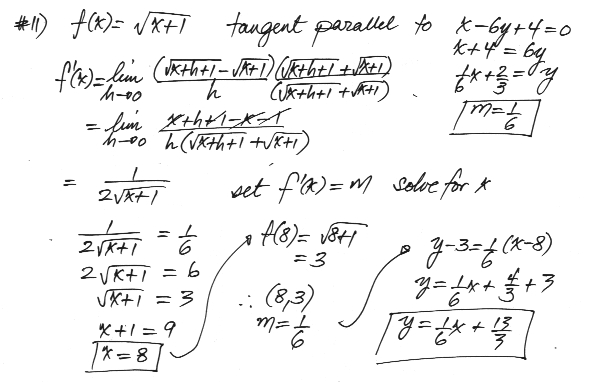 #11) f(x)= √x+1 tangent parallel to x-6y+4=0
x+4=6y
1/6x+2/3=y
m=1/6
f'(x)=lim h→0 (√x+h+1-√x+1)/h (√x+h+1+√x+1)/(√x+h+1+√x+1)
= lim h→0 x+h+1-x-1/h(√x+h+1+√x+1)
= 1/2√x+1 set f'(x)=m solve for x
1/2√x+1 = 1/6
2√x+1 = 6
√x+1 = 3
x+1=9
x=8
f(8)=√8+1
=3
∴ (8,3)
m=1/6
y-3=1/6(x-8)
y=1/6x+4/3+3
y=1/6x+13/3